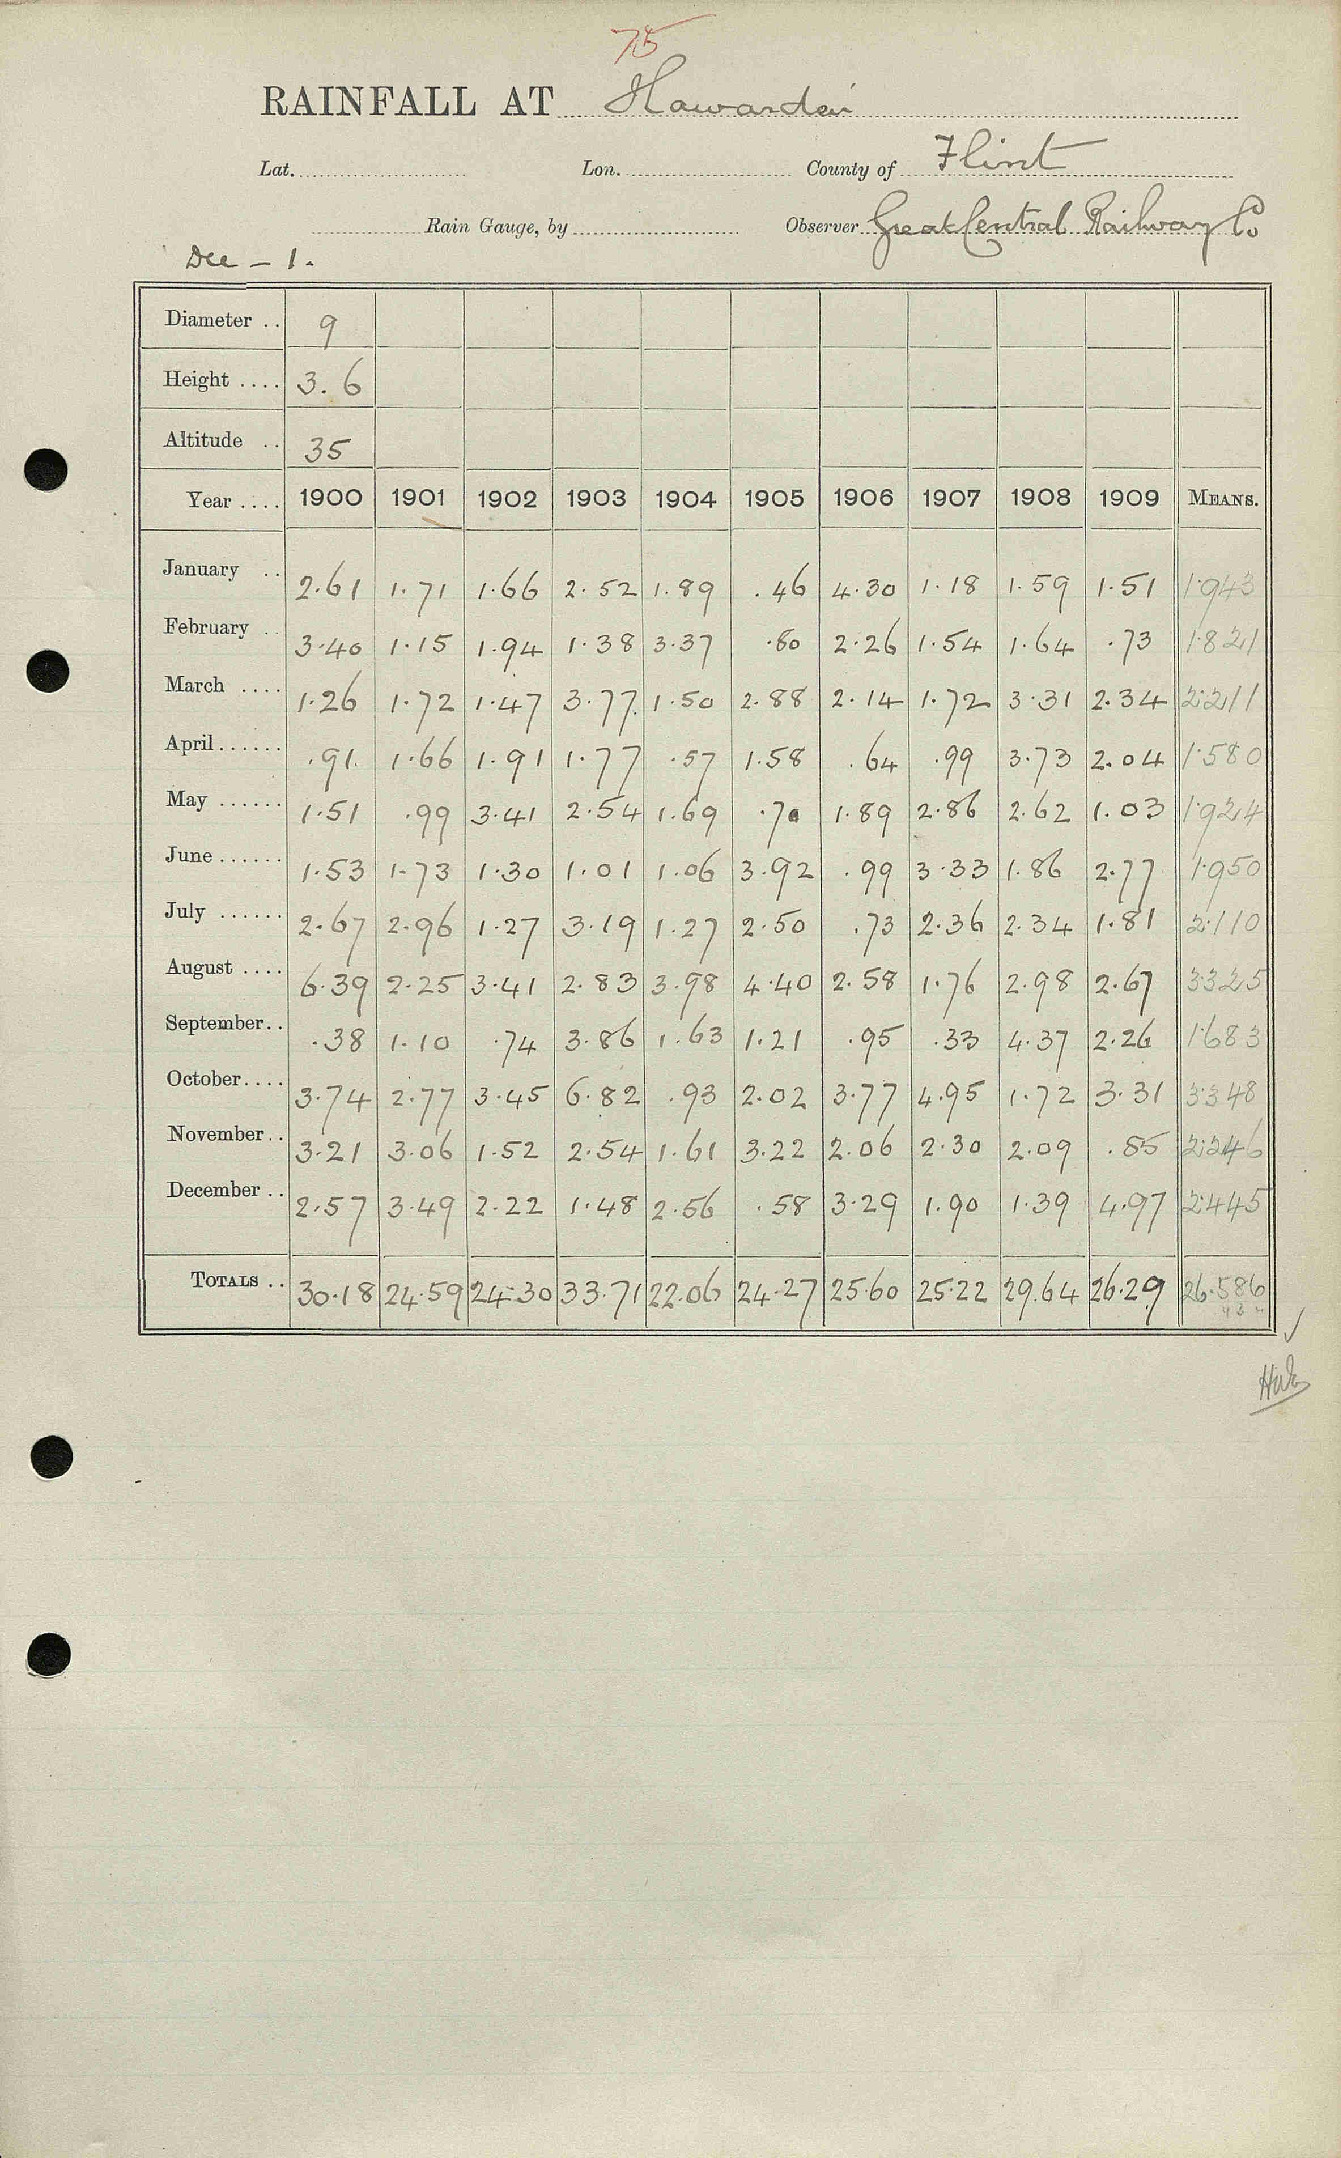 75
RAINFALL AT Hawarden
Lat. Lon. County of Flint
Rain Gauge, by Observer Great Central Railway Co
Dee - 1.
Diameter .. 9
Height .... 3. 6
Altitude .. 35
Year .... 1900 1901 1902 1903 1904 1905 1906 1907 1908 1909 MEANS.
January .. 2.61 1.71 1.66 2.52 1.89 .46 4.30 1.18 1.59 1.51 1.943
February .. 3.40 1.15 1.94 1.38 3.37 .80 2.26 1.54 1.64 .73 1.821
March .... 1.26 1.72 1.47 3.77 1.50 2.88 2.14 1.72 3.31 2.34 2.211
April ...... .91 1.66 1.91 1.77 .57 1.58 .64 .99 3.73 2.04 1.580
May ...... 1.51 .99 3.41 2.54 1.69 .70 1.89 2.86 2.62 1.03 1.924
June ...... 1.53 1.73 1.30 1.01 1.06 3.92 .99 3.33 1.86 2.77 1.950
July ...... 2.67 2.96 1.27 3.19 1.27 2.50 .73 2.36 2.34 1.81 2.110
August .... 6.39 2.25 3.41 2.83 3.98 4.40 2.58 1.76 2.98 2.67 3.325
September .. .38 1.10 .74 3.86 1.63 1.21 .95 .33 4.37 2.26 1.683
October .... 3.74 2.77 3.45 6.82 .93 2.02 3.77 4.95 1.72 3.31 3.348
November .. 3.21 3.06 1.52 2.54 1.61 3.22 2.06 2.30 2.09 .85 2.246
December .. 2.57 3.49 2.22 1.48 2.56 .58 3.29 1.90 1.39 4.97 2.445
TOTALS .. 30.18 24.59 24.30 33.71 22.06 24.27 25.60 25.22 29.64 26.29 26.586